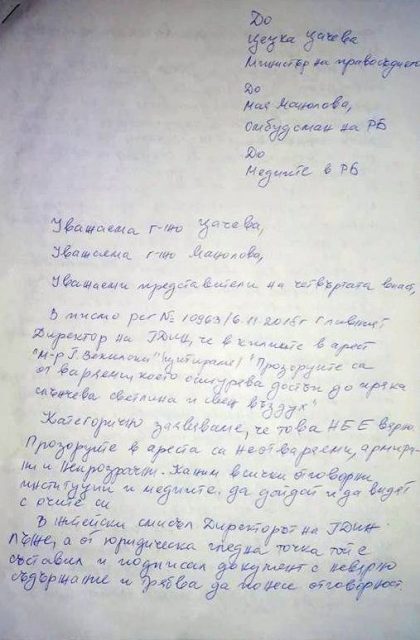 До
Цецка Цачева
Министър на правосъдиет
До
Мая Манолова,
Омбудсман на РБ
До
Медиите в РБ
Уважаема г-жо Цачева,
Уважаема г-жо Манолова,
Уважаеми представители на четвъртата власт,
В писмо рег № 10963/6.11.2018г Главният
Директор на ГДИН, че в килиите в арест
"М-р Г. Векилски" (цитираме) "Прозорците са
отваряеми, което осигурява достъп до пряка
слънчева светлина и свеж въздух"
Категорично заявяваме, че това НЕ Е вярно.
Прозорците в ареста са неотваряеми, армира-
ни и непрозрачни. Каним всички отговорни
институции и медиите, да дойдат и да видят
с очите си
В житейски смисъл Директорът на ГДИН
лъже, а от юридическа гледна точка той е
съставил и подписал документ с невярно
съдържание и трябва да понесе отговорност.